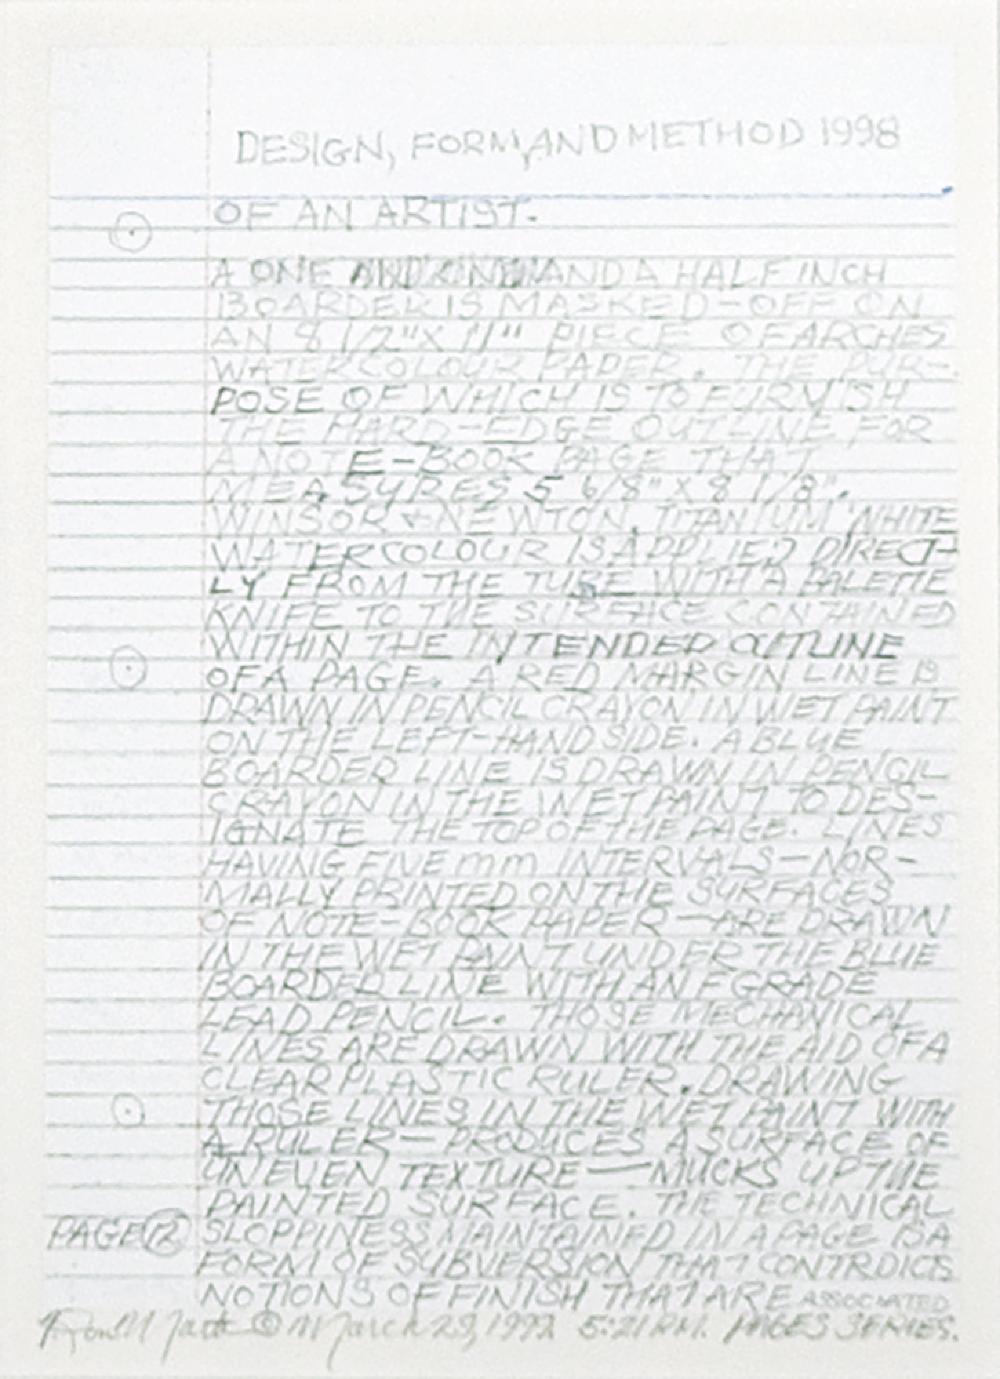 DESIGN, FORM, AND METHOD 1998
OF AN ARTIST.
A ONE AND A HALF INCH
BOARDER IS MASKED-OFF ON
AN 8 1/2" X 11" PIECE OF ARCHES
WATERCOLOUR PAPER. THE PUR-
POSE OF WHICH IS TO FURNISH
THE HARD-EDGE OUTLINE FOR
A NOTE-BOOK PAGE THAT
MEASURES 5 6/8" X 8 1/8".
WINSOR & NEWTON, TITANIUM WHITE
WATERCOLOUR IS APPLIED DIRECT-
LY FROM THE TUBE WITH A PALETTE
KNIFE TO THE SURFACE CONTAINED
WITHIN THE INTENDED OUTLINE
OF A PAGE. A RED MARGIN LINE IS
DRAWN IN PENCIL CRAYON IN WET PAINT
ON THE LEFT-HAND SIDE. A BLUE
BOARDER LINE IS DRAWN IN PENCIL
CRAYON IN THE WET PAINT TO DES-
IGNATE THE TOP OF THE PAGE. LINES
HAVING FIVE mm INTERVALS—NOR-
MALLY PRINTED ON THE SURFACES
OF NOTE-BOOK PAPER—ARE DRAWN
IN THE WET PAINT UNDER THE BLUE
BOARDER LINE WITH AN F GRADE
LEAD PENCIL. THOSE MECHANICAL
LINES ARE DRAWN WITH THE AID OF A
CLEAR PLASTIC RULER. DRAWING
THOSE LINES IN THE WET PAINT WITH
A RULER—PRODUCES A SURFACE OF
UNEVEN TEXTURE—MUCKS UP THE
PAINTED SURFACE. THE TECHNICAL
PAGE 12 SLOPPINESS MAINTAINED IN A PAGE IS A
FORM OF SUBVERSION THAT CONTRDICS
NOTIONS OF FINISH THAT ARE ASSOCIATED
© March 29, 1992 5:21 P.M. PAGES SERIES.